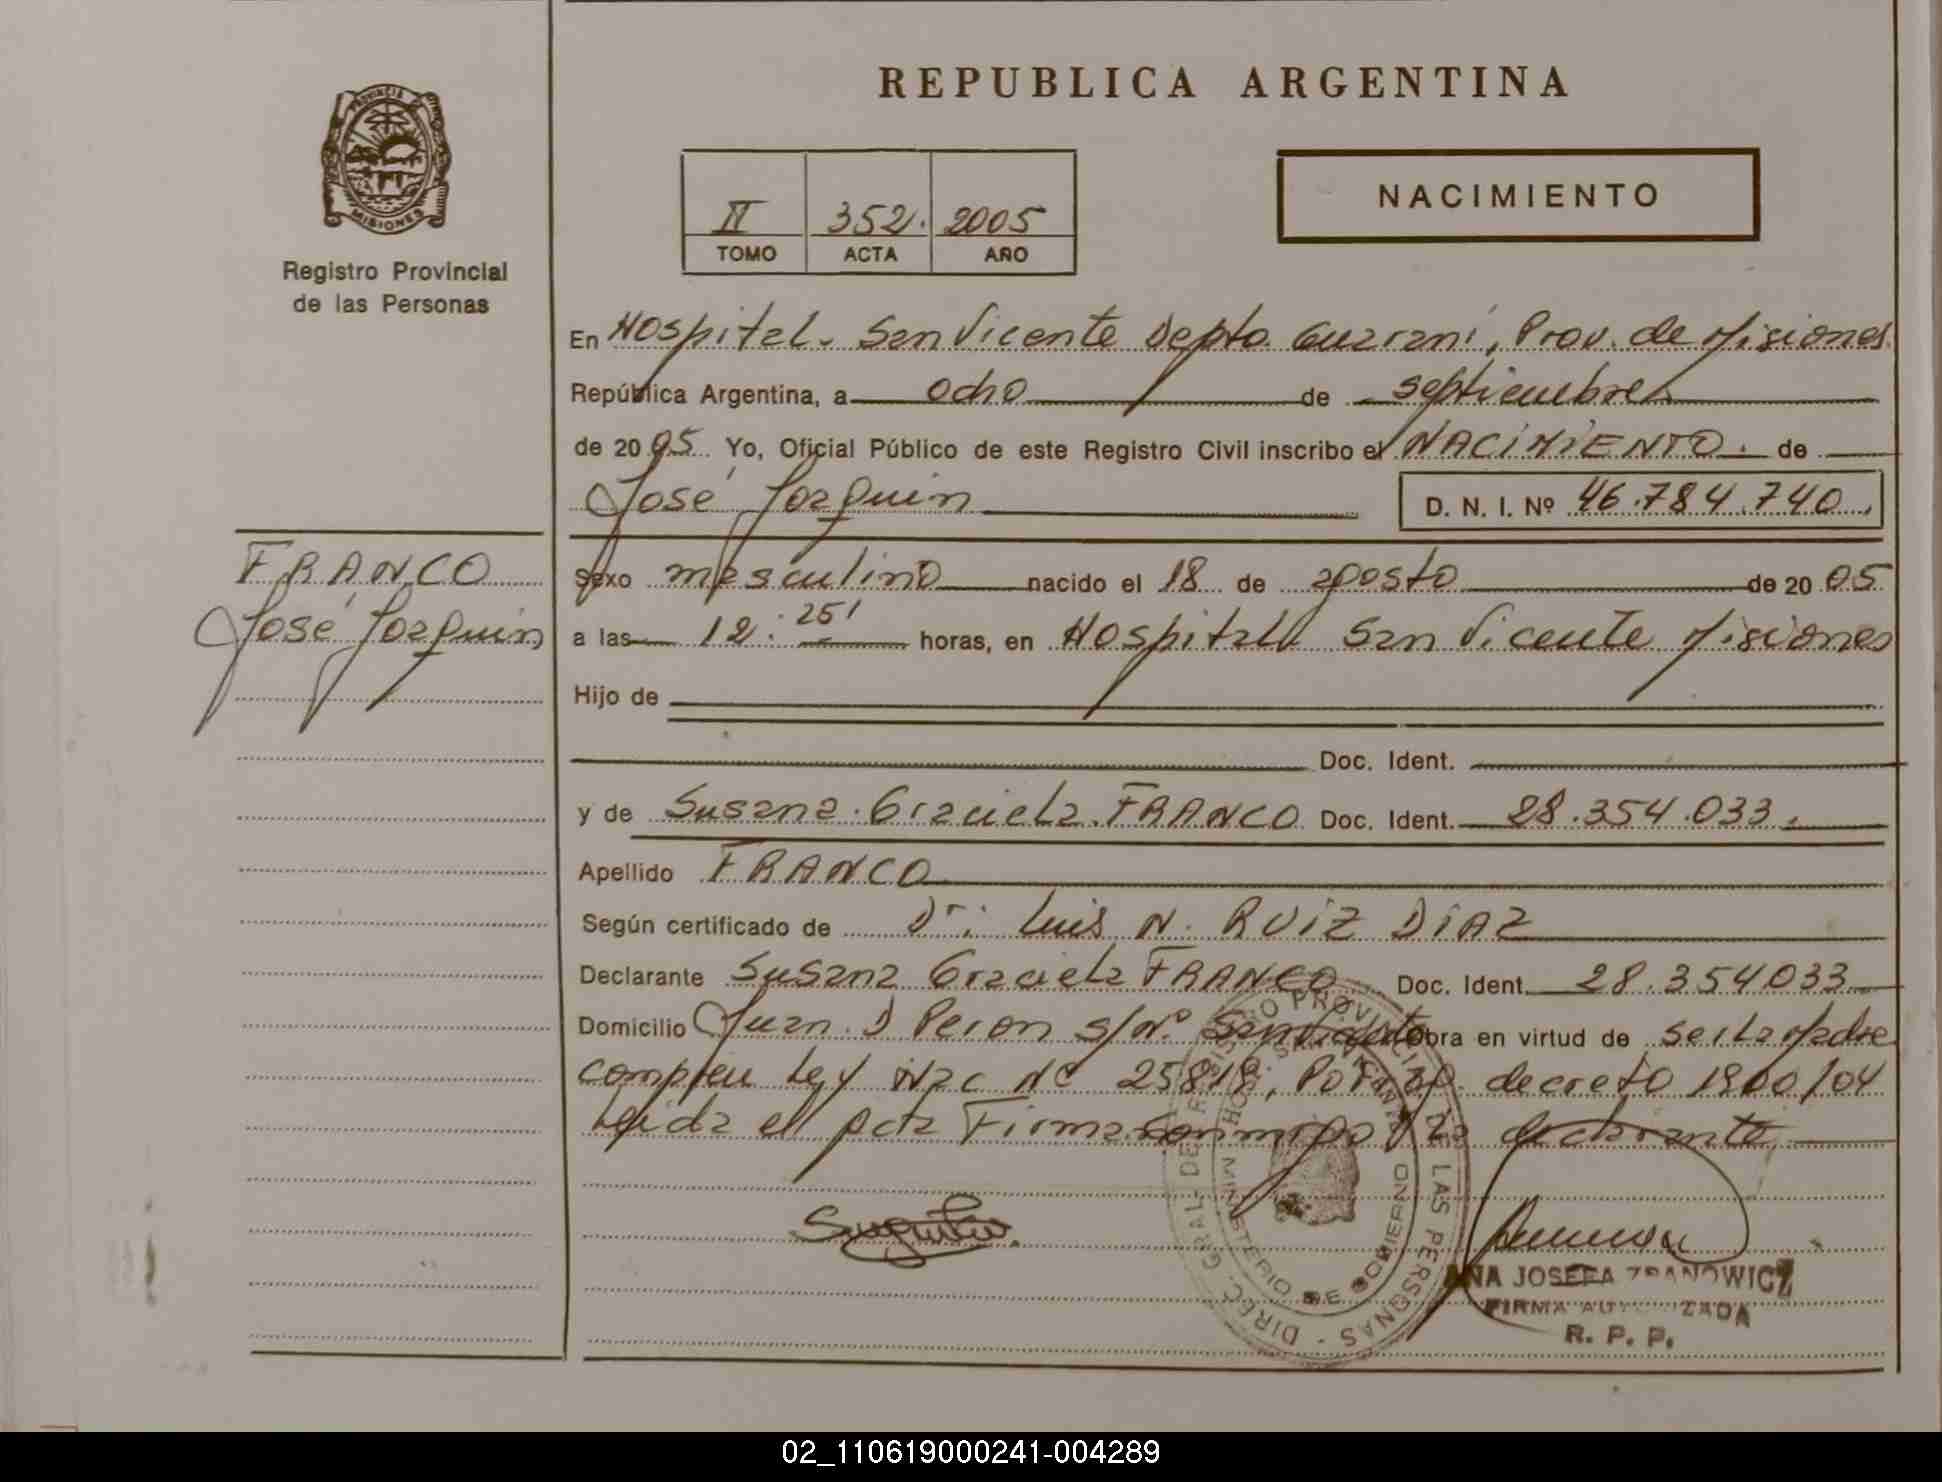 REPUBLICA ARGENTINA
PROVINCIA DE
MISIONES
Registro Provincial
de las Personas
II 352. 2005
TOMO ACTA AÑO
NACIMIENTO
En Hospital. San Vicente Depto. Guaraní, Prov. de Misiones.
República Argentina, a ocho de septiembre
de 2005. Yo, Oficial Público de este Registro Civil inscribo el NACIMIENTO. de
José Joaquin D. N. I. Nº 46.784.740.
FRANCO
José Joaquin
Sexo masculino nacido el 18 de agosto de 2005
a las 12:25' horas, en Hospital San Vicente Misiones
Hijo de
Doc. Ident.
y de Susana Graciela FRANCO Doc. Ident. 28.354.033.
Apellido FRANCO
Según certificado de Dr: Luis N. RUIZ DIAZ
Declarante Susana Graciela FRANCO Doc. Ident. 28.354033
Domicilio Juan D Peron s/Nº San Vicente Obra en virtud de ser la Madre
Ley Nac Nº 25818, decreto 1900/04
Leida el acta Firma conmigo la declarante
DIREC. GRAL. DE REGISTRO PROVINCIAL DE LAS PERSONAS
MINISTERIO DE GOBIERNO
ANA JOSEFA ZBANOWICZ
FIRMA AUTORIZADA
R. P. P.
02_110619000241-004289